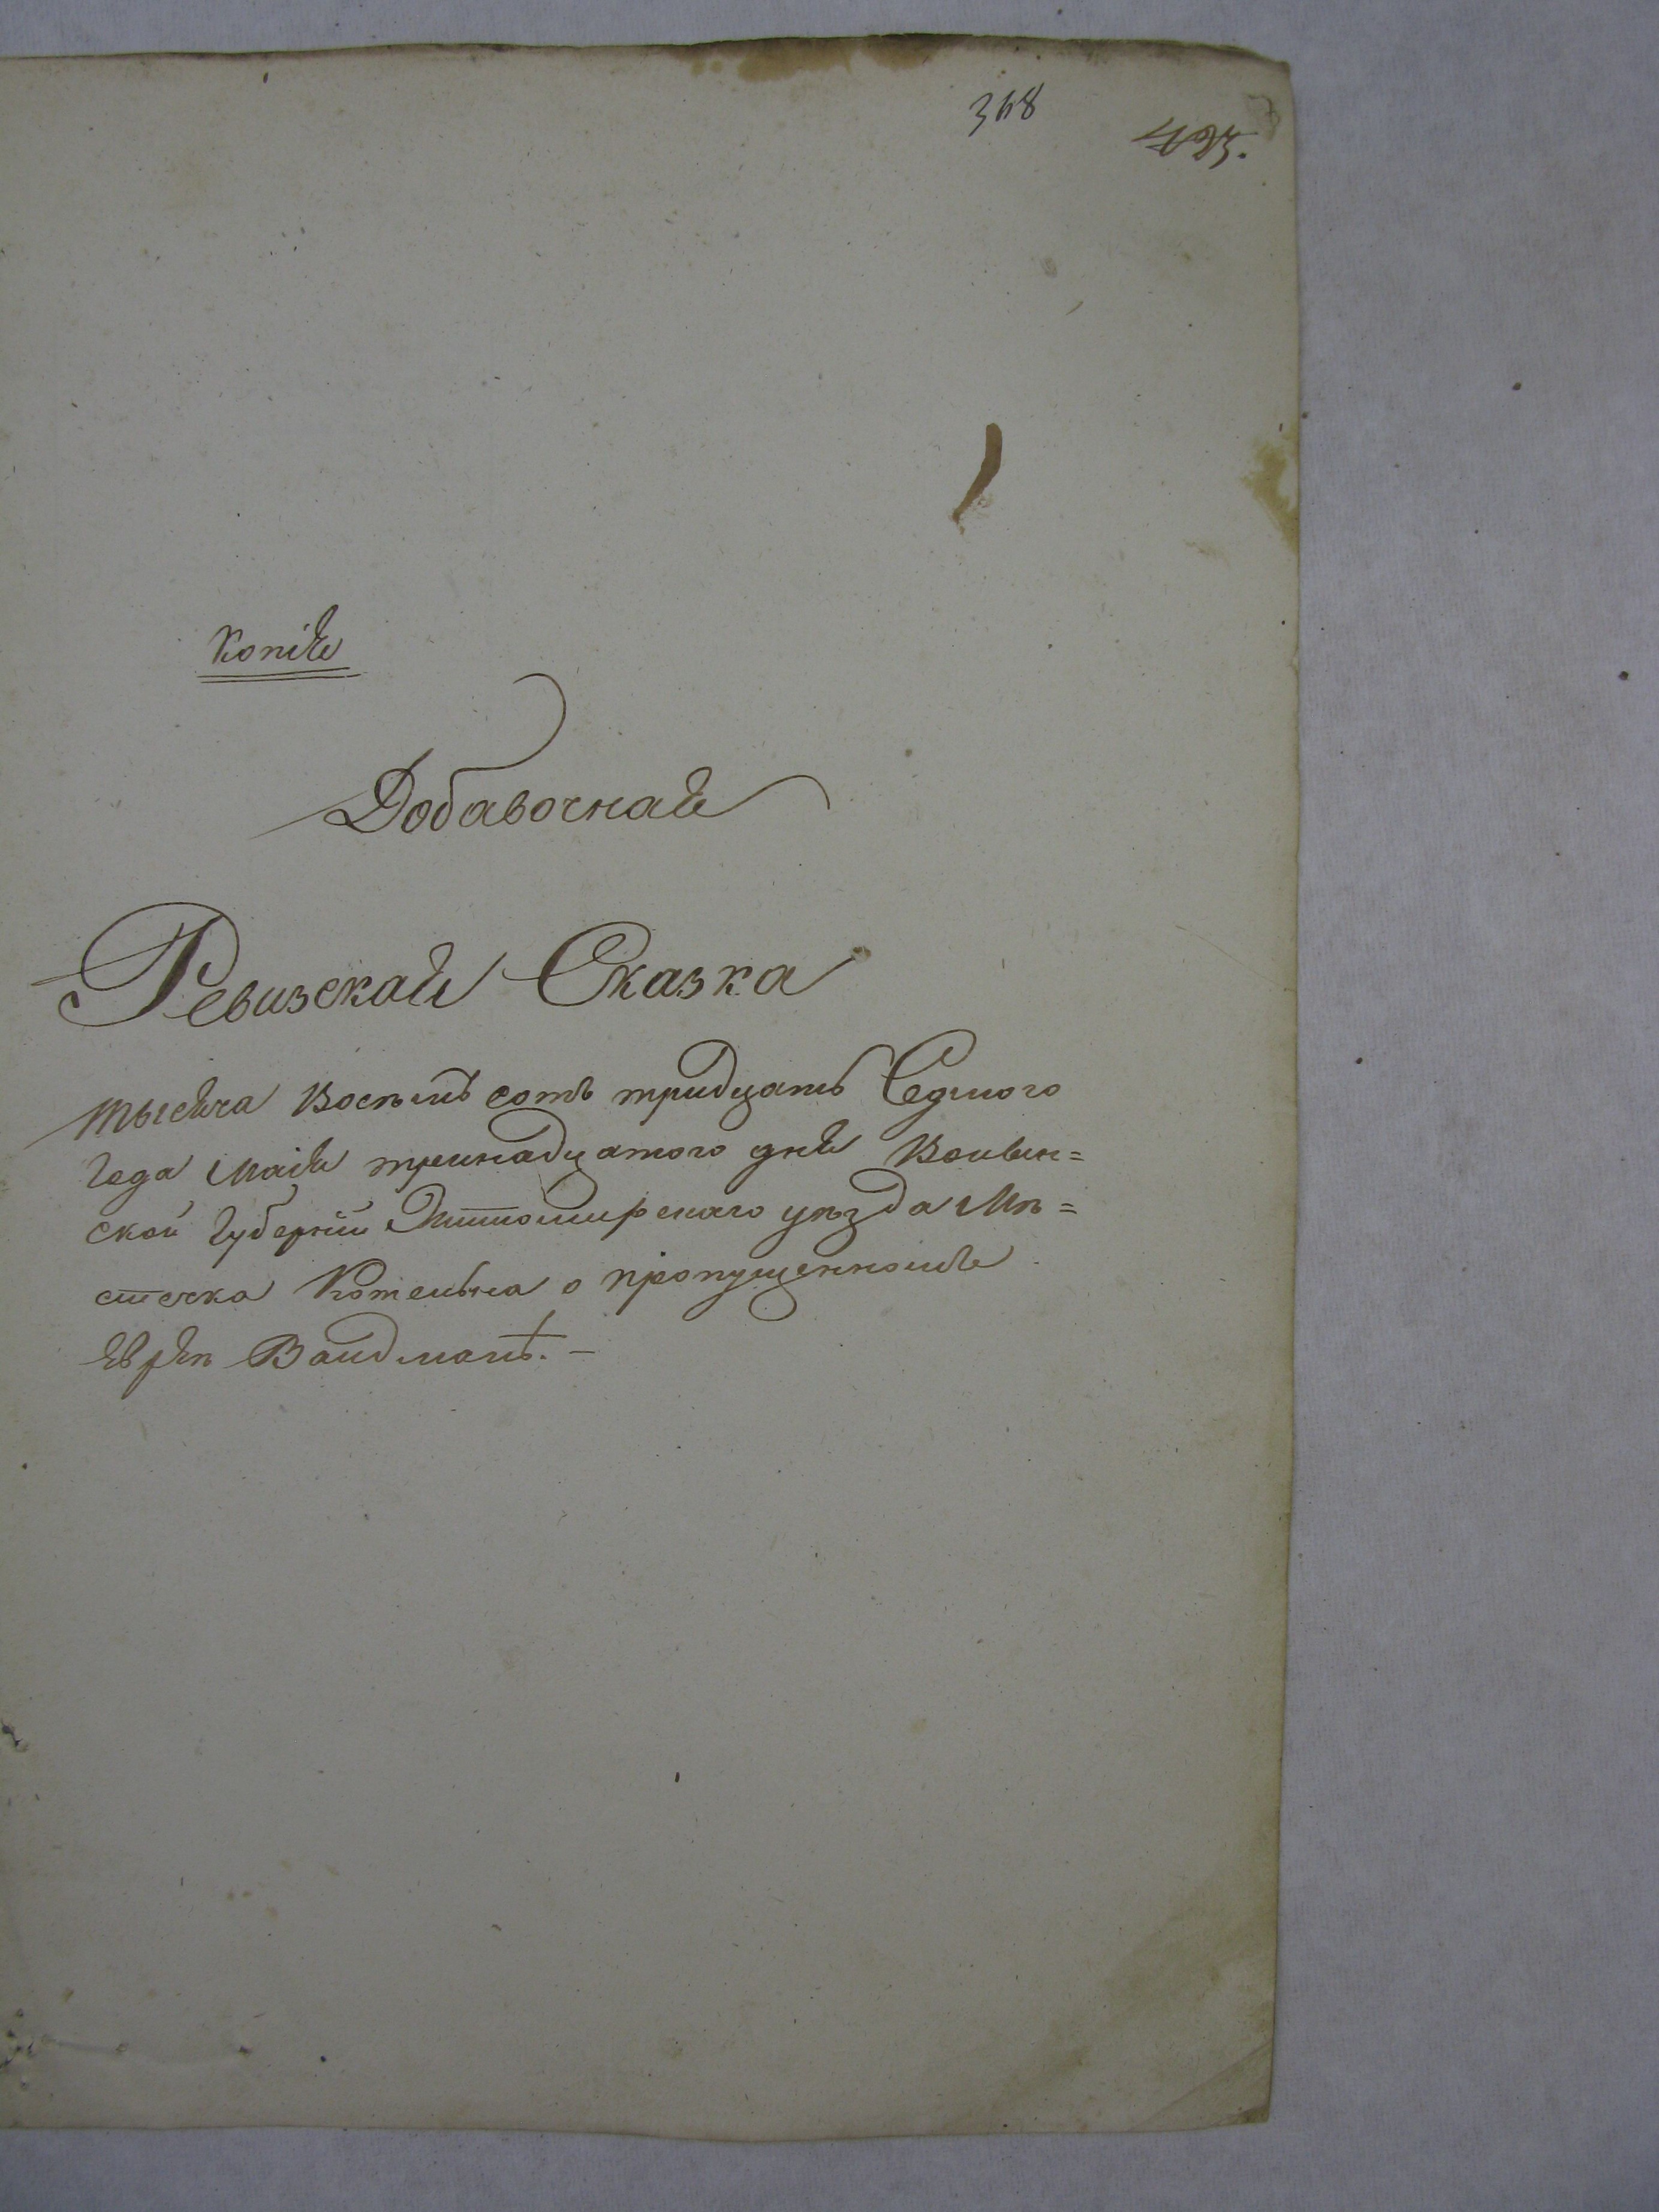 348
Копія
Добавочная
Ревизская Сказка
тысяча Восѣмъ сотъ тридцать Седмого
Года Маія тринадцатого дня Волын=
ской Губерніи Житомирскаго уѣзда Мѣ=
стечка Котельна о пропущенномъ
Евреѣ Вайдманъ. –